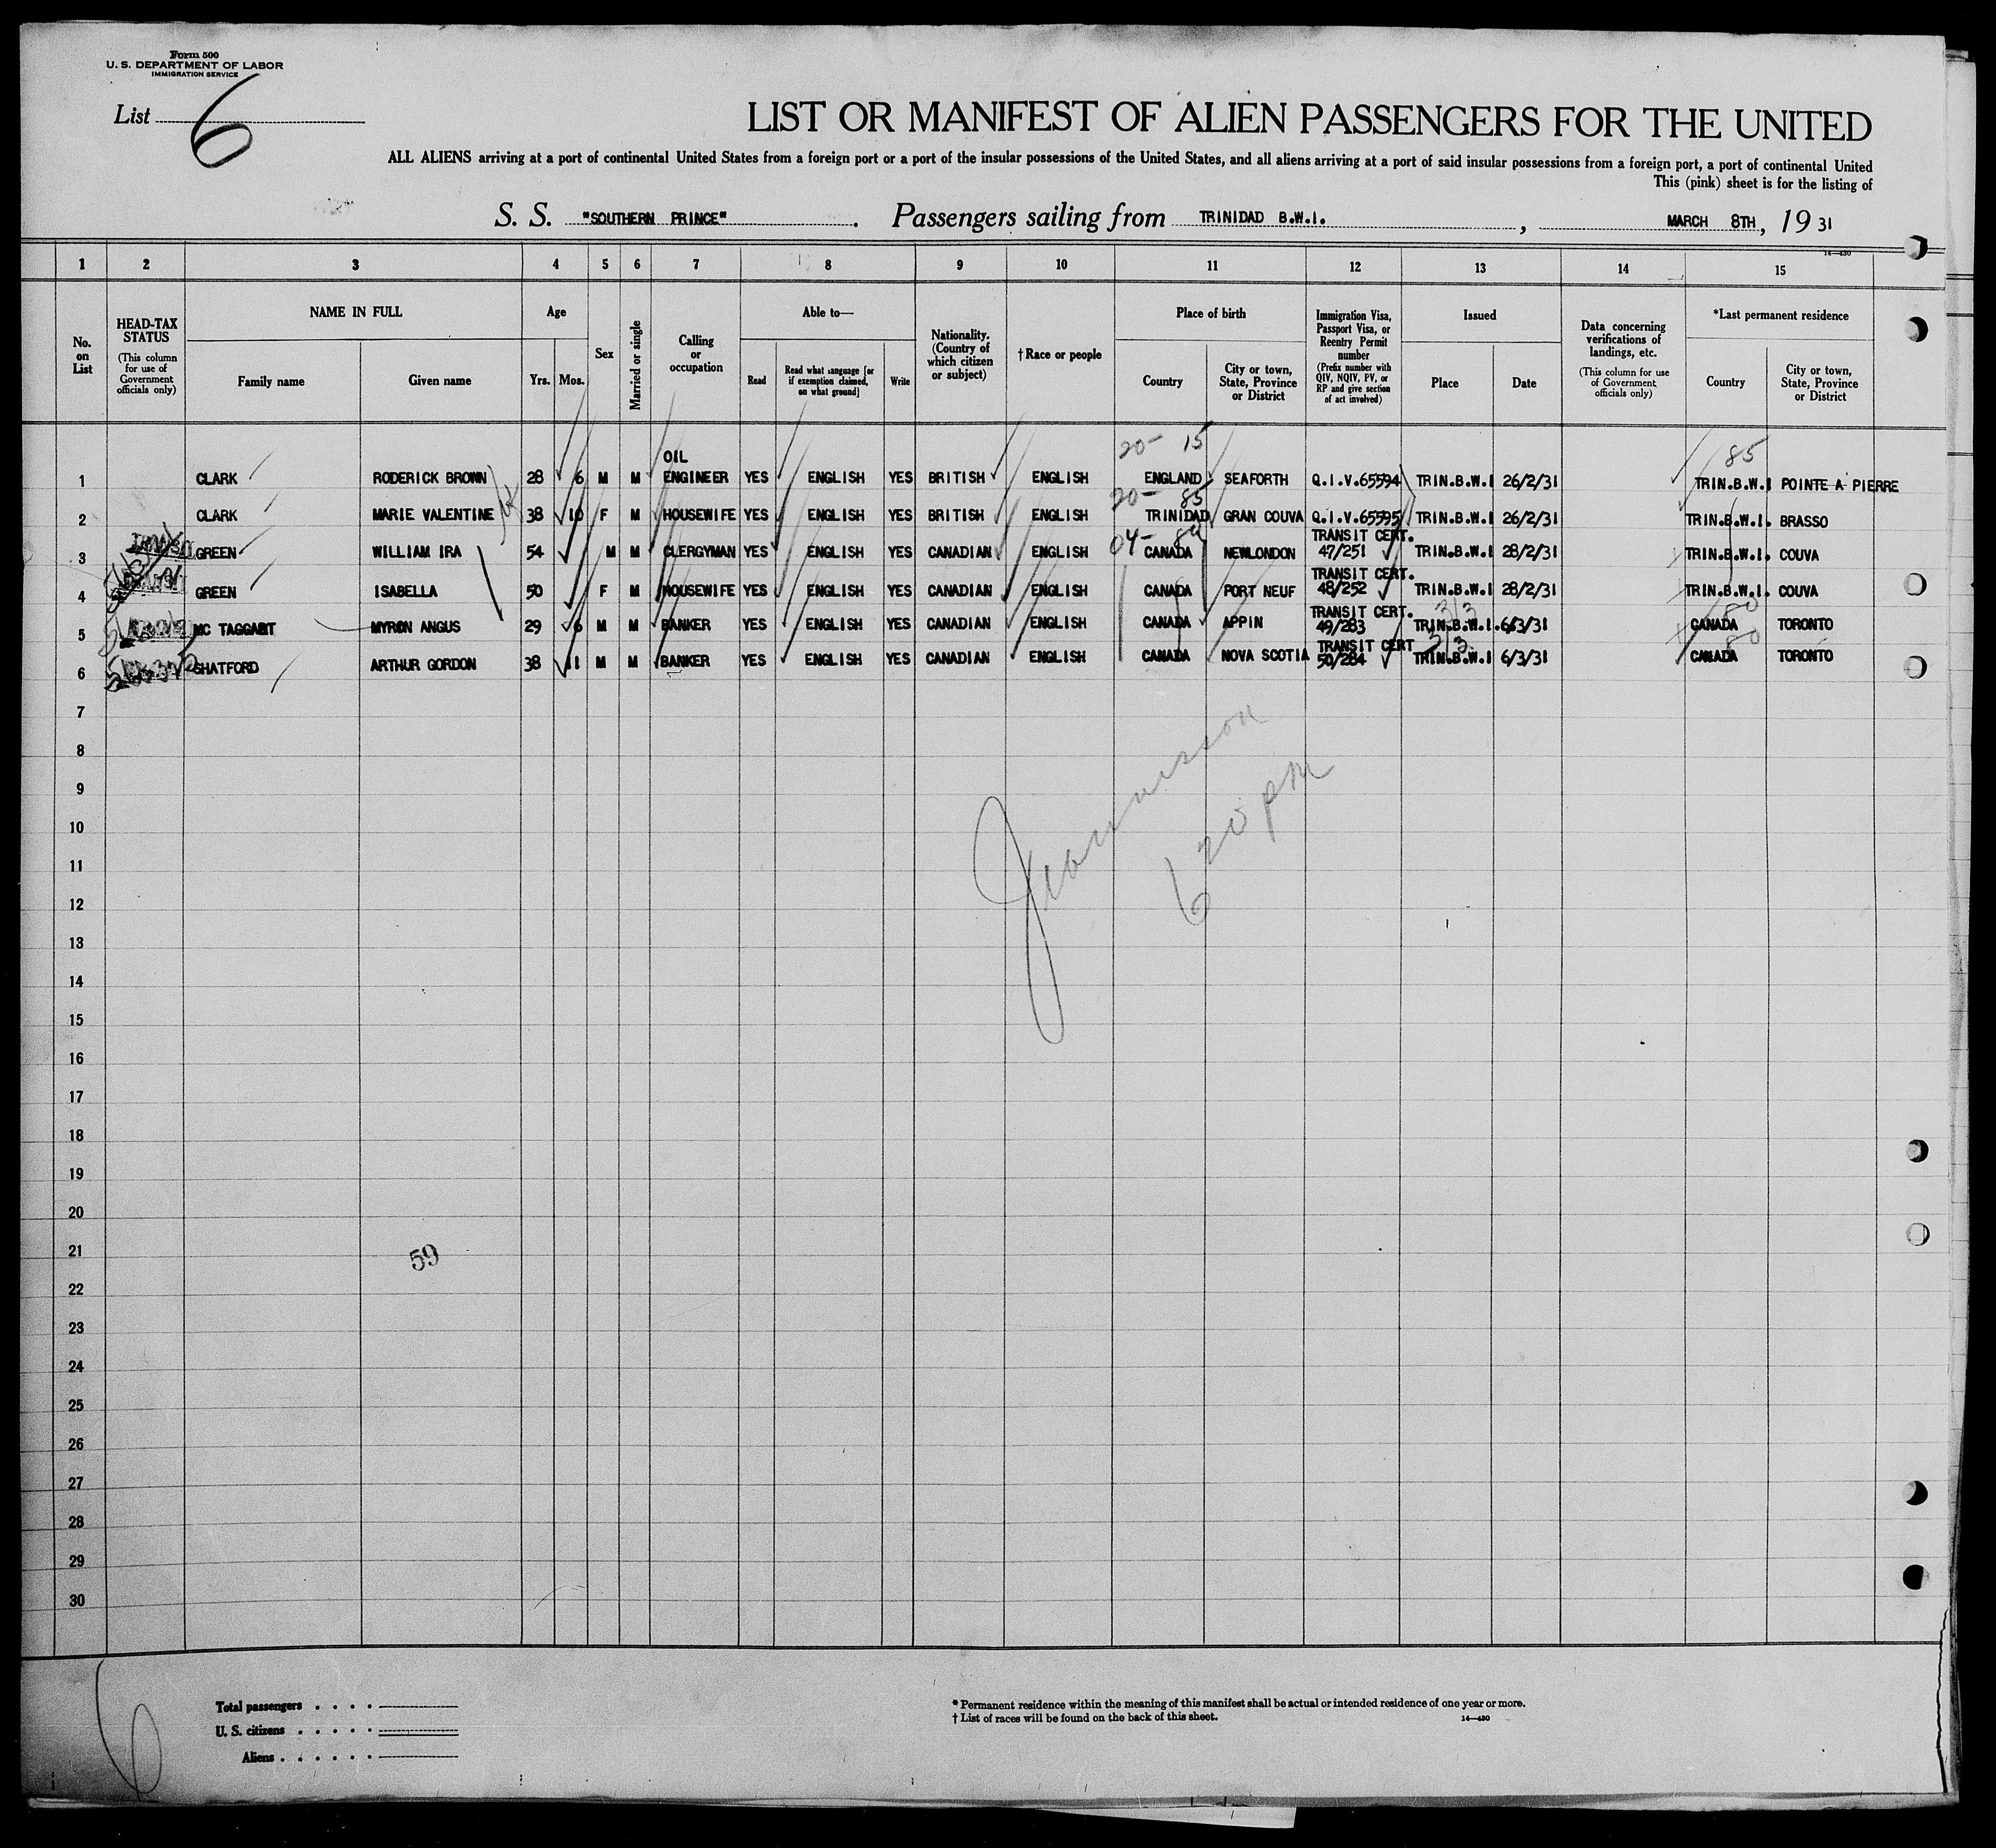 Form 500
U. S. DEPARTMENT OF LABOR
IMMIGRATION SERVICE
List 6
LIST OR MANIFEST OF ALIEN PASSENGERS FOR THE UNITED
ALL ALIENS arriving at a port of continental United States from a foreign port or a port of the insular possessions of the United States, and all aliens arriving at a port of said insular possessions from a foreign port, a port of continental United
This (pink) sheet is for the listing of
S. S. "SOUTHERN PRINCE". Passengers sailing from TRINIDAD B.W.I., MARCH 8TH, 19 31
14—430
1 2 3 4 5 6 7 8 9 10 11 12 13 14 15
No. on List
HEAD-TAX STATUS (This column for use of Government officials only)
NAME IN FULL Family name Given name
Age Yrs. Mos.
Sex
Married or single
Calling or occupation
Able to— Read Read what language [or if exemption claimed, on what ground] Write
Nationality. (Country of which citizen or subject)
† Race or people
Place of birth Country City or town, State, Province or District
Immigration Visa, Passport Visa, or Reentry Permit number (Prefix number with QIV, NQIV, PV, or RP and give section of act involved)
Issued Place Date
Data concerning verifications of landings, etc. (This column for use of Government officials only)
*Last permanent residence Country City or town, State, Province or District
20- 15 85
1 CLARK RODERICK BROWN 28 6 M M OIL ENGINEER YES ENGLISH YES BRITISH ENGLISH ENGLAND SEAFORTH Q.I.V.65594 TRIN.B.W.I 26/2/31 TRIN.B.W.I POINTE A PIERRE
20- 85
2 CLARK MARIE VALENTINE 38 10 F M HOUSEWIFE YES ENGLISH YES BRITISH ENGLISH TRINIDAD GRAN COUVA Q.I.V.65595 TRIN.B.W.I 26/2/31 TRIN.B.W.I. BRASSO
04-
3 GREEN WILLIAM IRA 54 M M CLERGYMAN YES ENGLISH YES CANADIAN ENGLISH CANADA NEWLONDON TRANSIT CERT. 47/251 TRIN.B.W.I 28/2/31 TRIN.B.W.I. COUVA
4 GREEN ISABELLA 50 F M HOUSEWIFE YES ENGLISH YES CANADIAN ENGLISH CANADA PORT NEUF TRANSIT CERT. 48/252 TRIN.B.W.I 28/2/31 TRIN.B.W.I. COUVA
3/3 80
5 MC TAGGART MYRON ANGUS 29 6 M M BANKER YES ENGLISH YES CANADIAN ENGLISH CANADA APPIN TRANSIT CERT. 49/283 TRIN.B.W.I. 6/3/31 CANADA TORONTO
3/3 80
6 SHATFORD ARTHUR GORDON 38 11 M M BANKER YES ENGLISH YES CANADIAN ENGLISH CANADA NOVA SCOTIA TRANSIT CERT 50/284 TRIN.B.W.I 6/3/31 CANADA TORONTO
7
8
9
6 20 pm
10
11
12
13
14
15
16
17
18
19
20
21
59
22
23
24
25
26
27
28
29
30
6
Total passengers
U. S. citizens
Aliens
* Permanent residence within the meaning of this manifest shall be actual or intended residence of one year or more.
† List of races will be found on the back of this sheet.
14—430